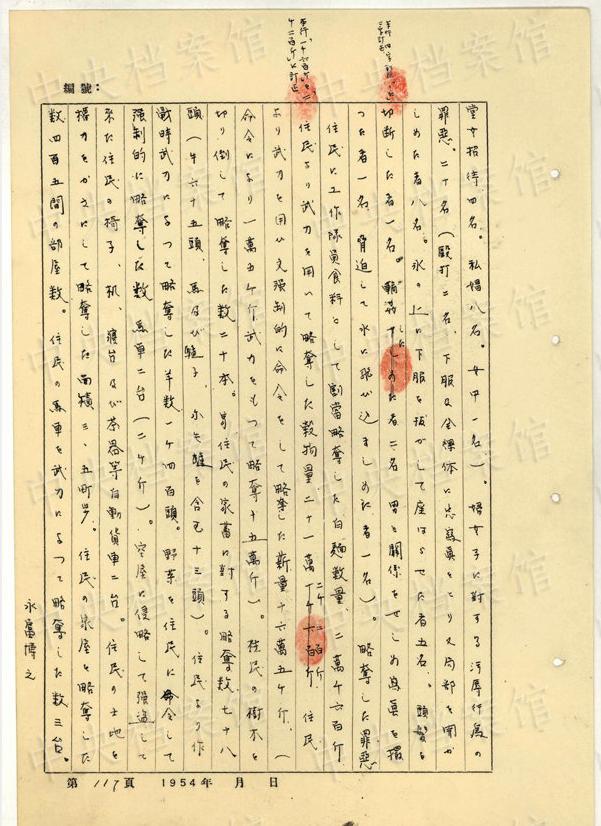 編號：
堂女招待四名。私娼八名。女中一名）。婦女子に対する汚辱行為の
罪悪。二十名（殴打二名、下服及全裸体にし写真をとり又局部を開か
しめた者八名。氷の上に下服を抜がして座はらせた者五名。頭髪を
切断した者一名。輪姦した者二名 男と関係をせしめ写真を撮
つた者一名、脅迫して水に飛び込ましめた者一名）。略奪した罪悪
住民に工作隊員食料として割當略奪した白麺数量二萬六百斤
住民より武力を用いて略奪した穀物量二十一萬二千二百斤 住民
より武力を用ひ又強制的に命令をして略奪した薪量十六萬五千斤、（
命令により一萬五千斤武力をもつて略奪十五萬斤）。住民の樹木を
切り倒して略奪した数二十本。住民の家畜に対する略奪数七十八
頭（牛六十五頭、馬及び騾子、小矢驢を含む十三頭）。住民より作
戦時武力によつて略奪した羊数一千四百頭。野草を住民に命令して
強制的に略奪した数 馬車二台（二千斤）。空屋に侵略して強盗して
来た住民の椅子、机、寝台及び茶器等自動貨車二台。住民の土地を
権力をかさにして略奪した面積三、五町歩。住民の家屋を略奪した
数四百五間の部屋数。住民の馬車を武力によつて略奪した数三台。
永富博之
第 117 頁 1954年 月 日
中央档案馆